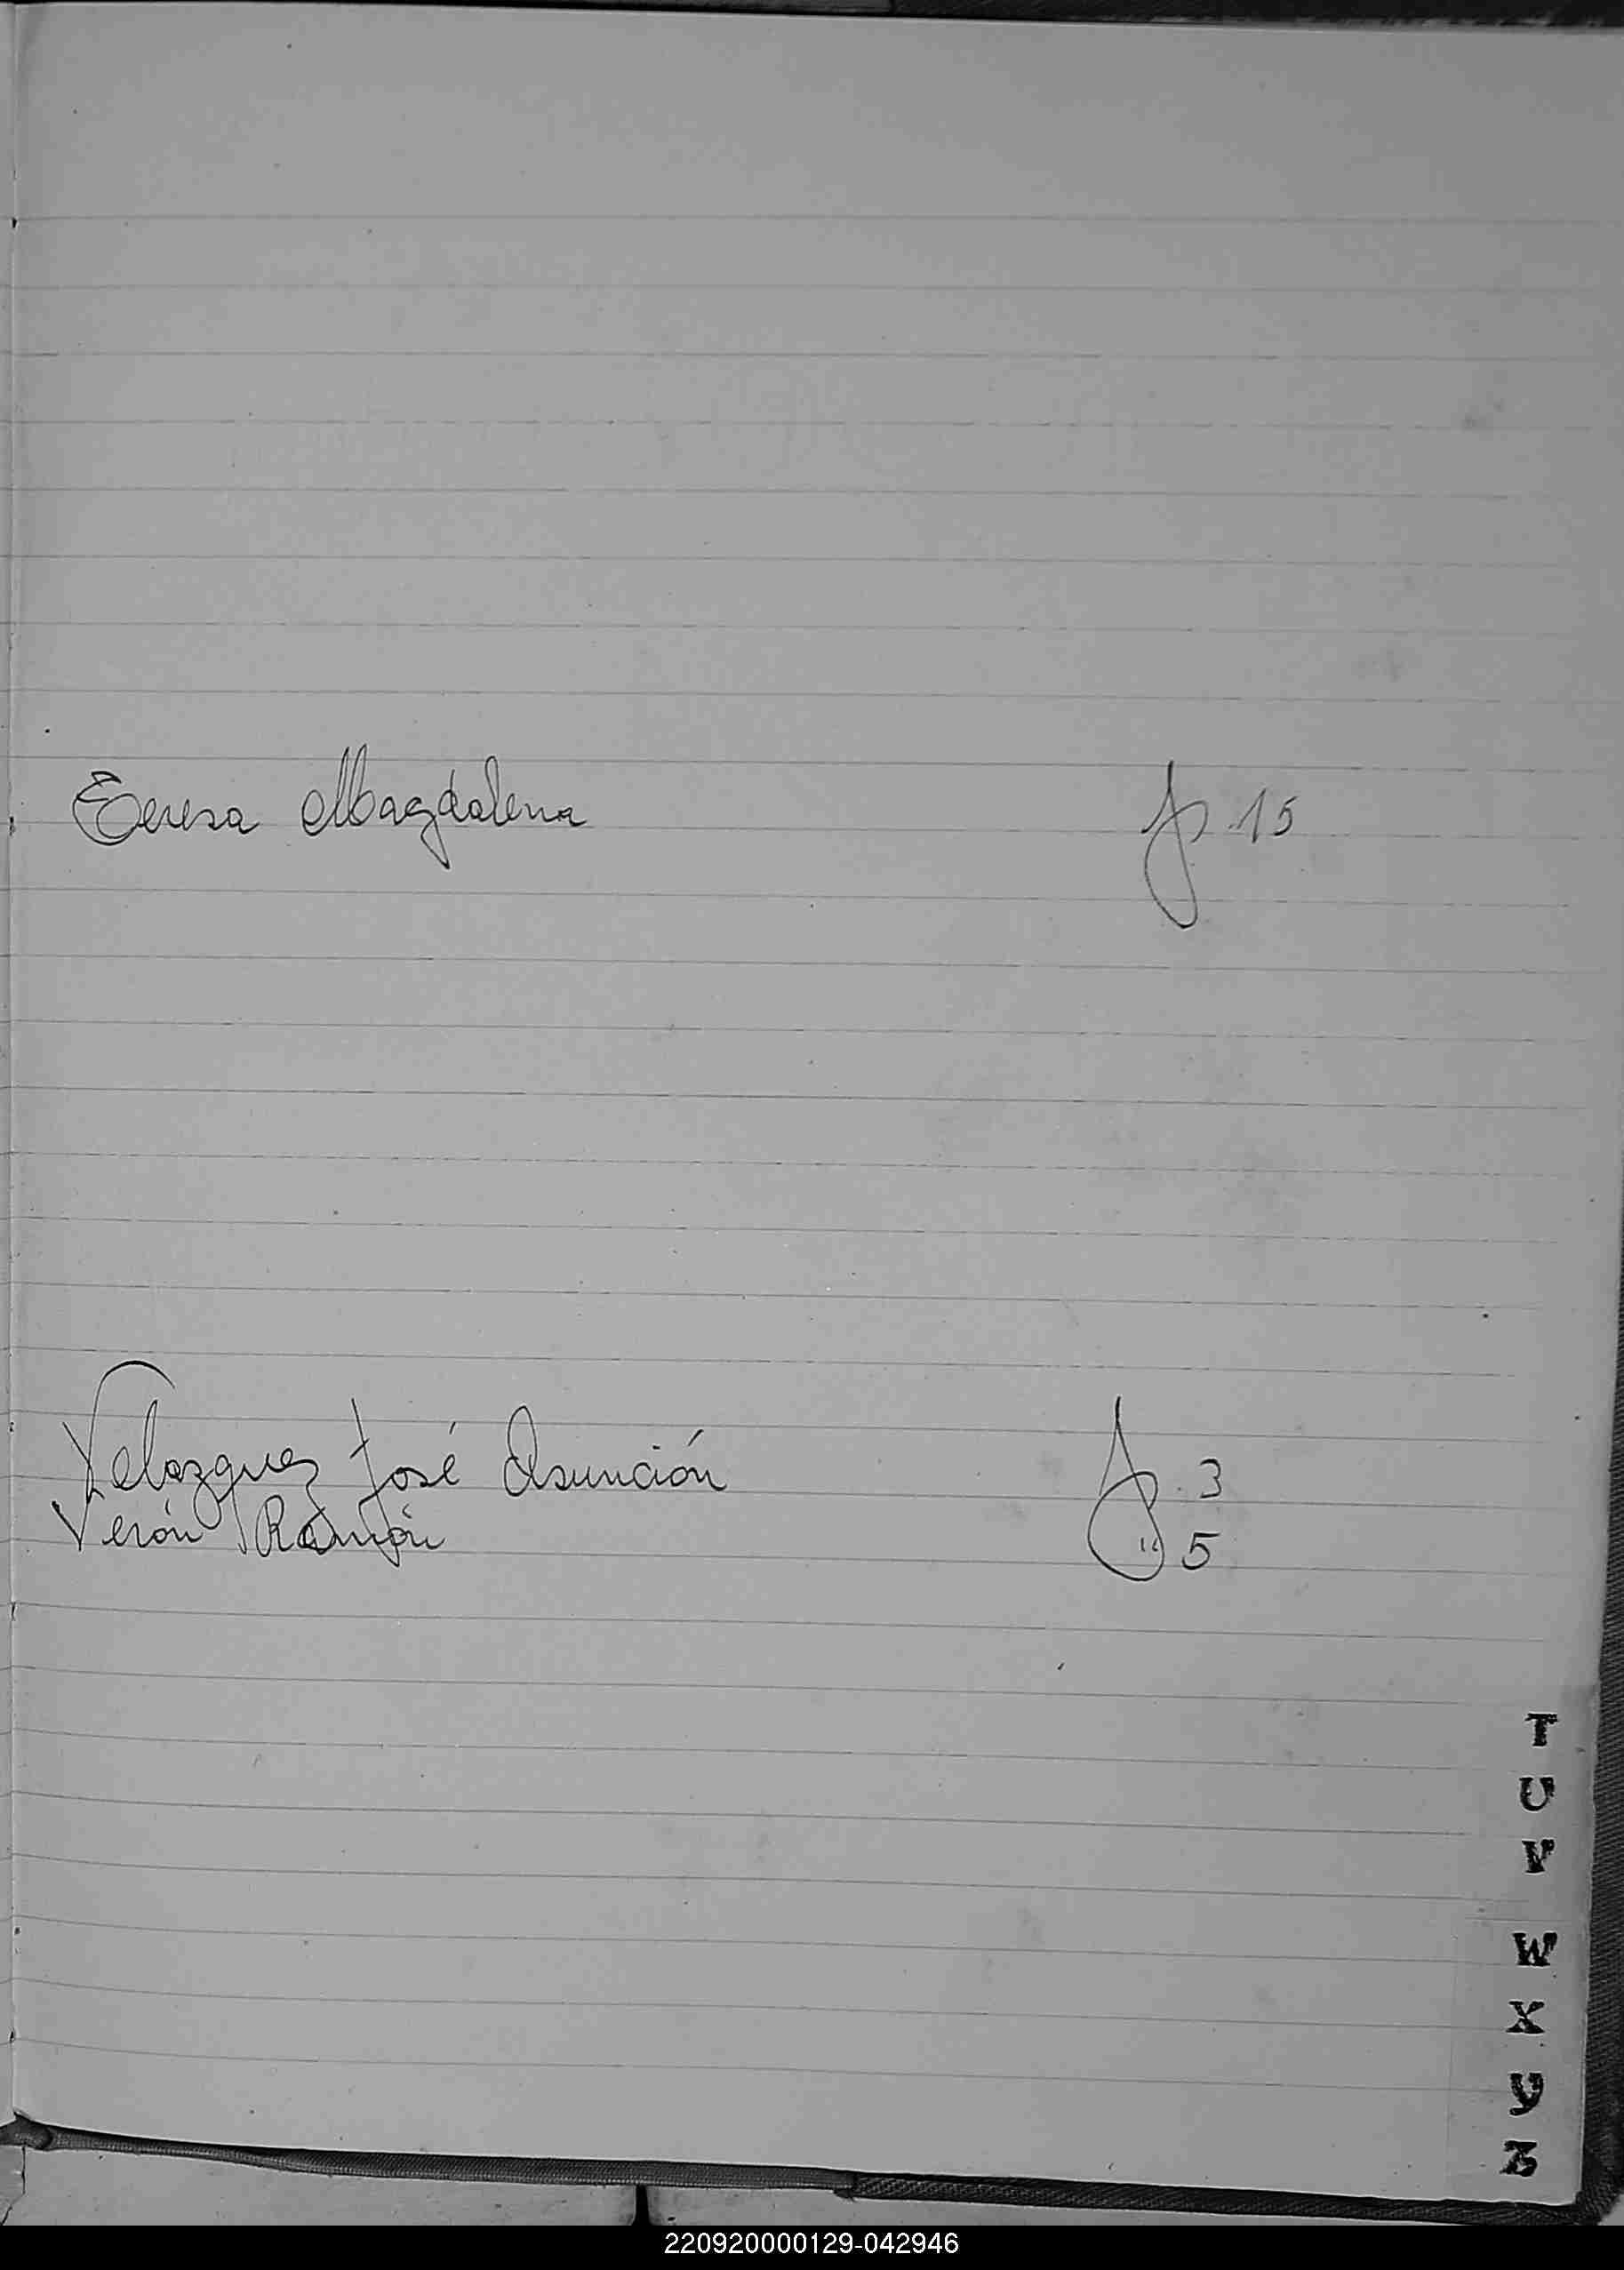 Teresa Magdalena fs. 15
Velazquez José Asunción fs. 3
Verón Ramón " 5
T
U
V
W
X
Y
Z
220920000129-042946